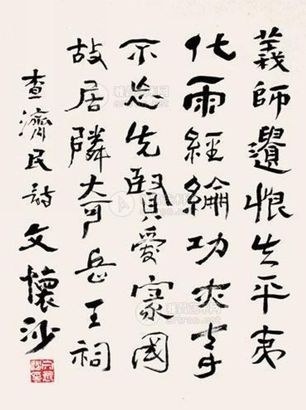 義師遺恨失平夷
化雨經綸功
不忘先賢愛家國
故居隣奇岳王祠
查濟民詩文懷沙